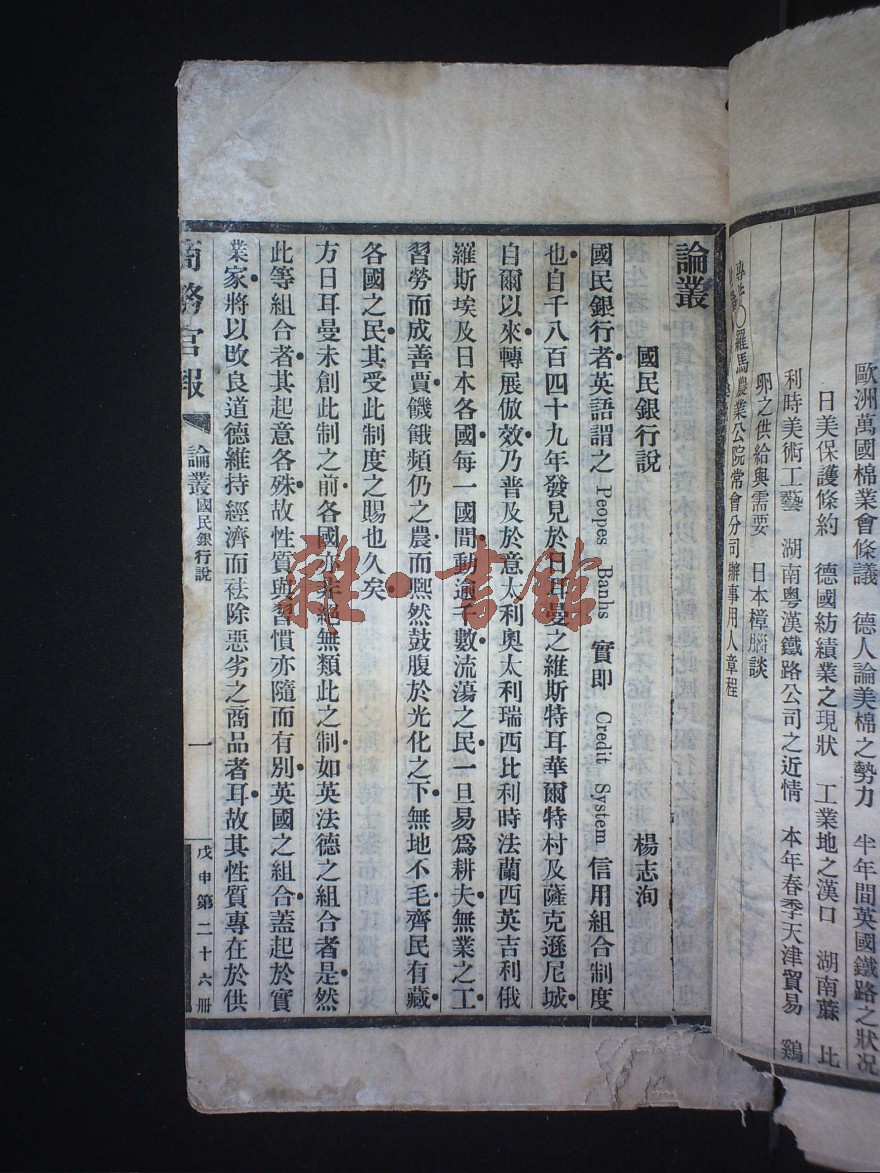 歐洲萬國棉業會條議　德人論美棉之勢力　半年間英國鐵路之狀况
日美保護條約　德國紡績業之現狀　工業地之漢口　湖南蔴　比
利時美術工藝　湖南粤漢鐵路公司之近情　本年春季天津貿易　鷄
卵之供給與需要　日本樟腦談
羅馬農業公院常會分司辦事用人章程
論叢
國民銀行說　楊志洵
國民銀行者英語謂之 Peopes Banhs 實即 Credit System 信用組合制度
也自千八百四十九年發見於日耳曼之維斯特耳華爾特村及薩克遜尼城
自爾以來轉展倣效乃普及於意太利奧太利瑞西比利時法蘭西英吉利俄
羅斯埃及日本各國每一國間動逾千數流蕩之民一旦易爲耕夫無業之工
習勞而成善賈饑餓頻仍之農而熈然鼓腹於光化之下無地不毛齊民有藏
各國之民其受此制度之賜也久矣
方日耳曼未創此制之前各國亦非絕無類此之制如英法德之組合者是然
此等組合者其起意各殊故性質與習慣亦隨而有別英國之組合蓋起於實
業家將以改良道德維持經濟而祛除惡劣之商品者耳故其性質專在於供
商務官報　論叢　國民銀行說　一　戊申第二十六册
雜·書館